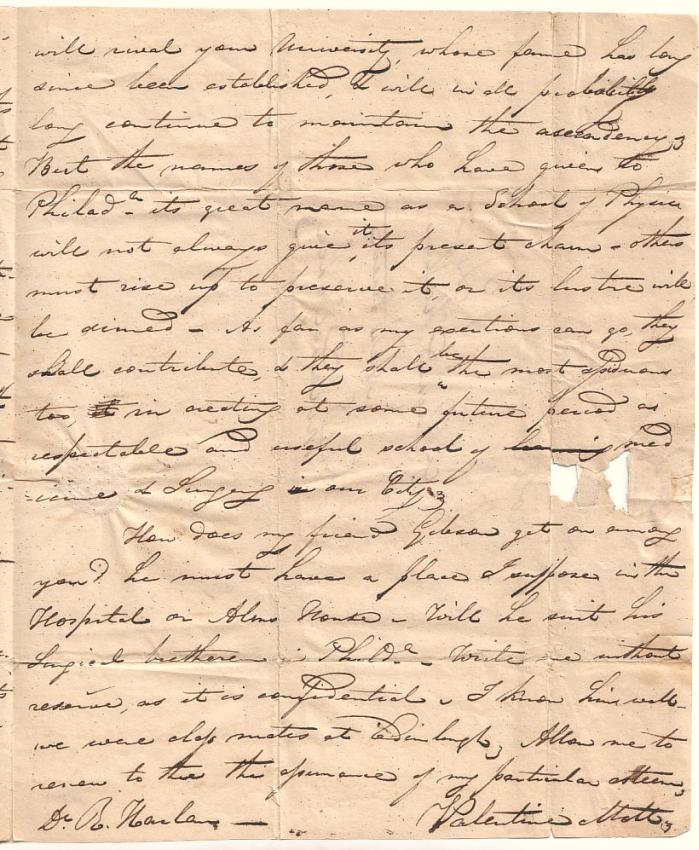 will rival your University, whose fame has long
since been established, & will in all probability
long continue to maintain the ascendency,
But the names of those who have given to
Philada. its great name as a School of Physic
will not always give it, its present charm - others
must rise up to preserve it, or its lustre will
be dimed - As far as my exertions can go, they
shall contribute, & they shall be the most
too, in erecting at some future period as
respectable and useful school of learning med
-icine & Surgery in our City,
How does my friend Gibson get on among
you? he must have a place I suppose in the
Hospital or Alms House - Will he suit his
Surgical bretheren in Philda. - Write me without
reserve, as it is confidential - I know him well -
we were class mates at Edinburgh, Allow me to
renew to thee the assurance of my particular esteem,
Dr. R. Harlan - Valentine Mott